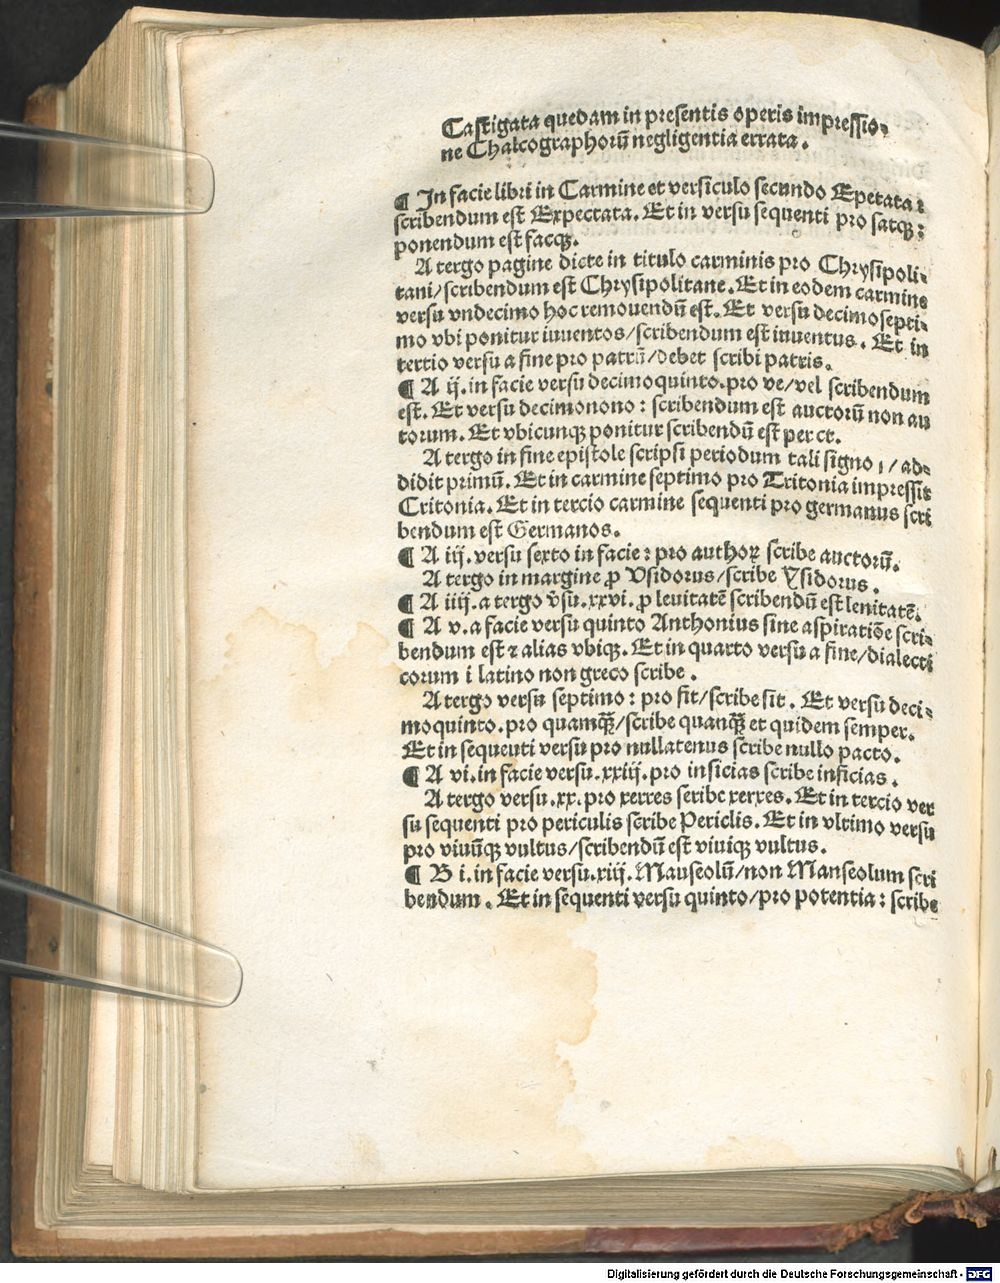 Castigata quedam in presentis operis impressio-
ne Chalcographorū negligentia errata.
¶ In facie libri in Carmine et versiculo secundo Epetata:
scribendum est Expectata. Et in versu sequenti pro satqꝫ:
ponendum est facqꝫ.
A tergo pagine dicte in titulo carminis pro Chrysipoli-
tani/scribendum est Chrysipolitane. Et in eodem carmine
versu vndecimo hoc remouendū est. Et versu decimosepti-
mo vbi ponitur iuuentos/scribendum est inuentus. Et in
tertio versu a fine pro patrū/debet scribi patris.
¶ A ij. in facie versu decimoquinto. pro ve/vel scribendum
est. Et versu decimonono: scribendum est auctorū non au
torum. Et vbicunqꝫ ponitur scribendū est per ct.
A tergo in fine epistole scripsi periodum tali signo ;/ ad-
didit primū. Et in carmine septimo pro Tritonia impressit
Critonia. Et in tercio carmine sequenti pro germanus scri
bendum est Germanos.
¶ A iij. versu sexto in facie: pro authoꝝ scribe auctorū.
A tergo in margine ꝓ Vsidorus/scribe Ysidorus.
¶ A iiij. a tergo v̄su. xxvi. ꝓ leuitatē scribendū est lenitatē.
¶ A v. a facie versu quinto Anthonius sine aspiratiōe scri-
bendum est ⁊ alias vbiqꝫ. Et in quarto versu a fine/dialecti
corum i latino non greco scribe.
A tergo versu septimo: pro fit/scribe sit. Et versu deci-
moquinto. pro quamqꝫ̄/scribe quanqꝫ̄ et quidem semper.
Et in sequenti versu pro nullatenus scribe nullo pacto.
¶ A vi. in facie versu. xxiij. pro insicias scribe inficias.
A tergo versu. xx. pro xerres scribe xerxes. Et in tercio ver
su sequenti pro periculis scribe Periclis. Et in vltimo versu
pro viuūqꝫ vultus/scribendū est viuiqꝫ vultus.
¶ B i. in facie versu. xiij. Mauseolū/non Manseolum scri
bendum. Et in sequenti versu quinto/pro potentia: scribe
Digitalisierung gefördert durch die Deutsche Forschungsgemeinschaft - DFG